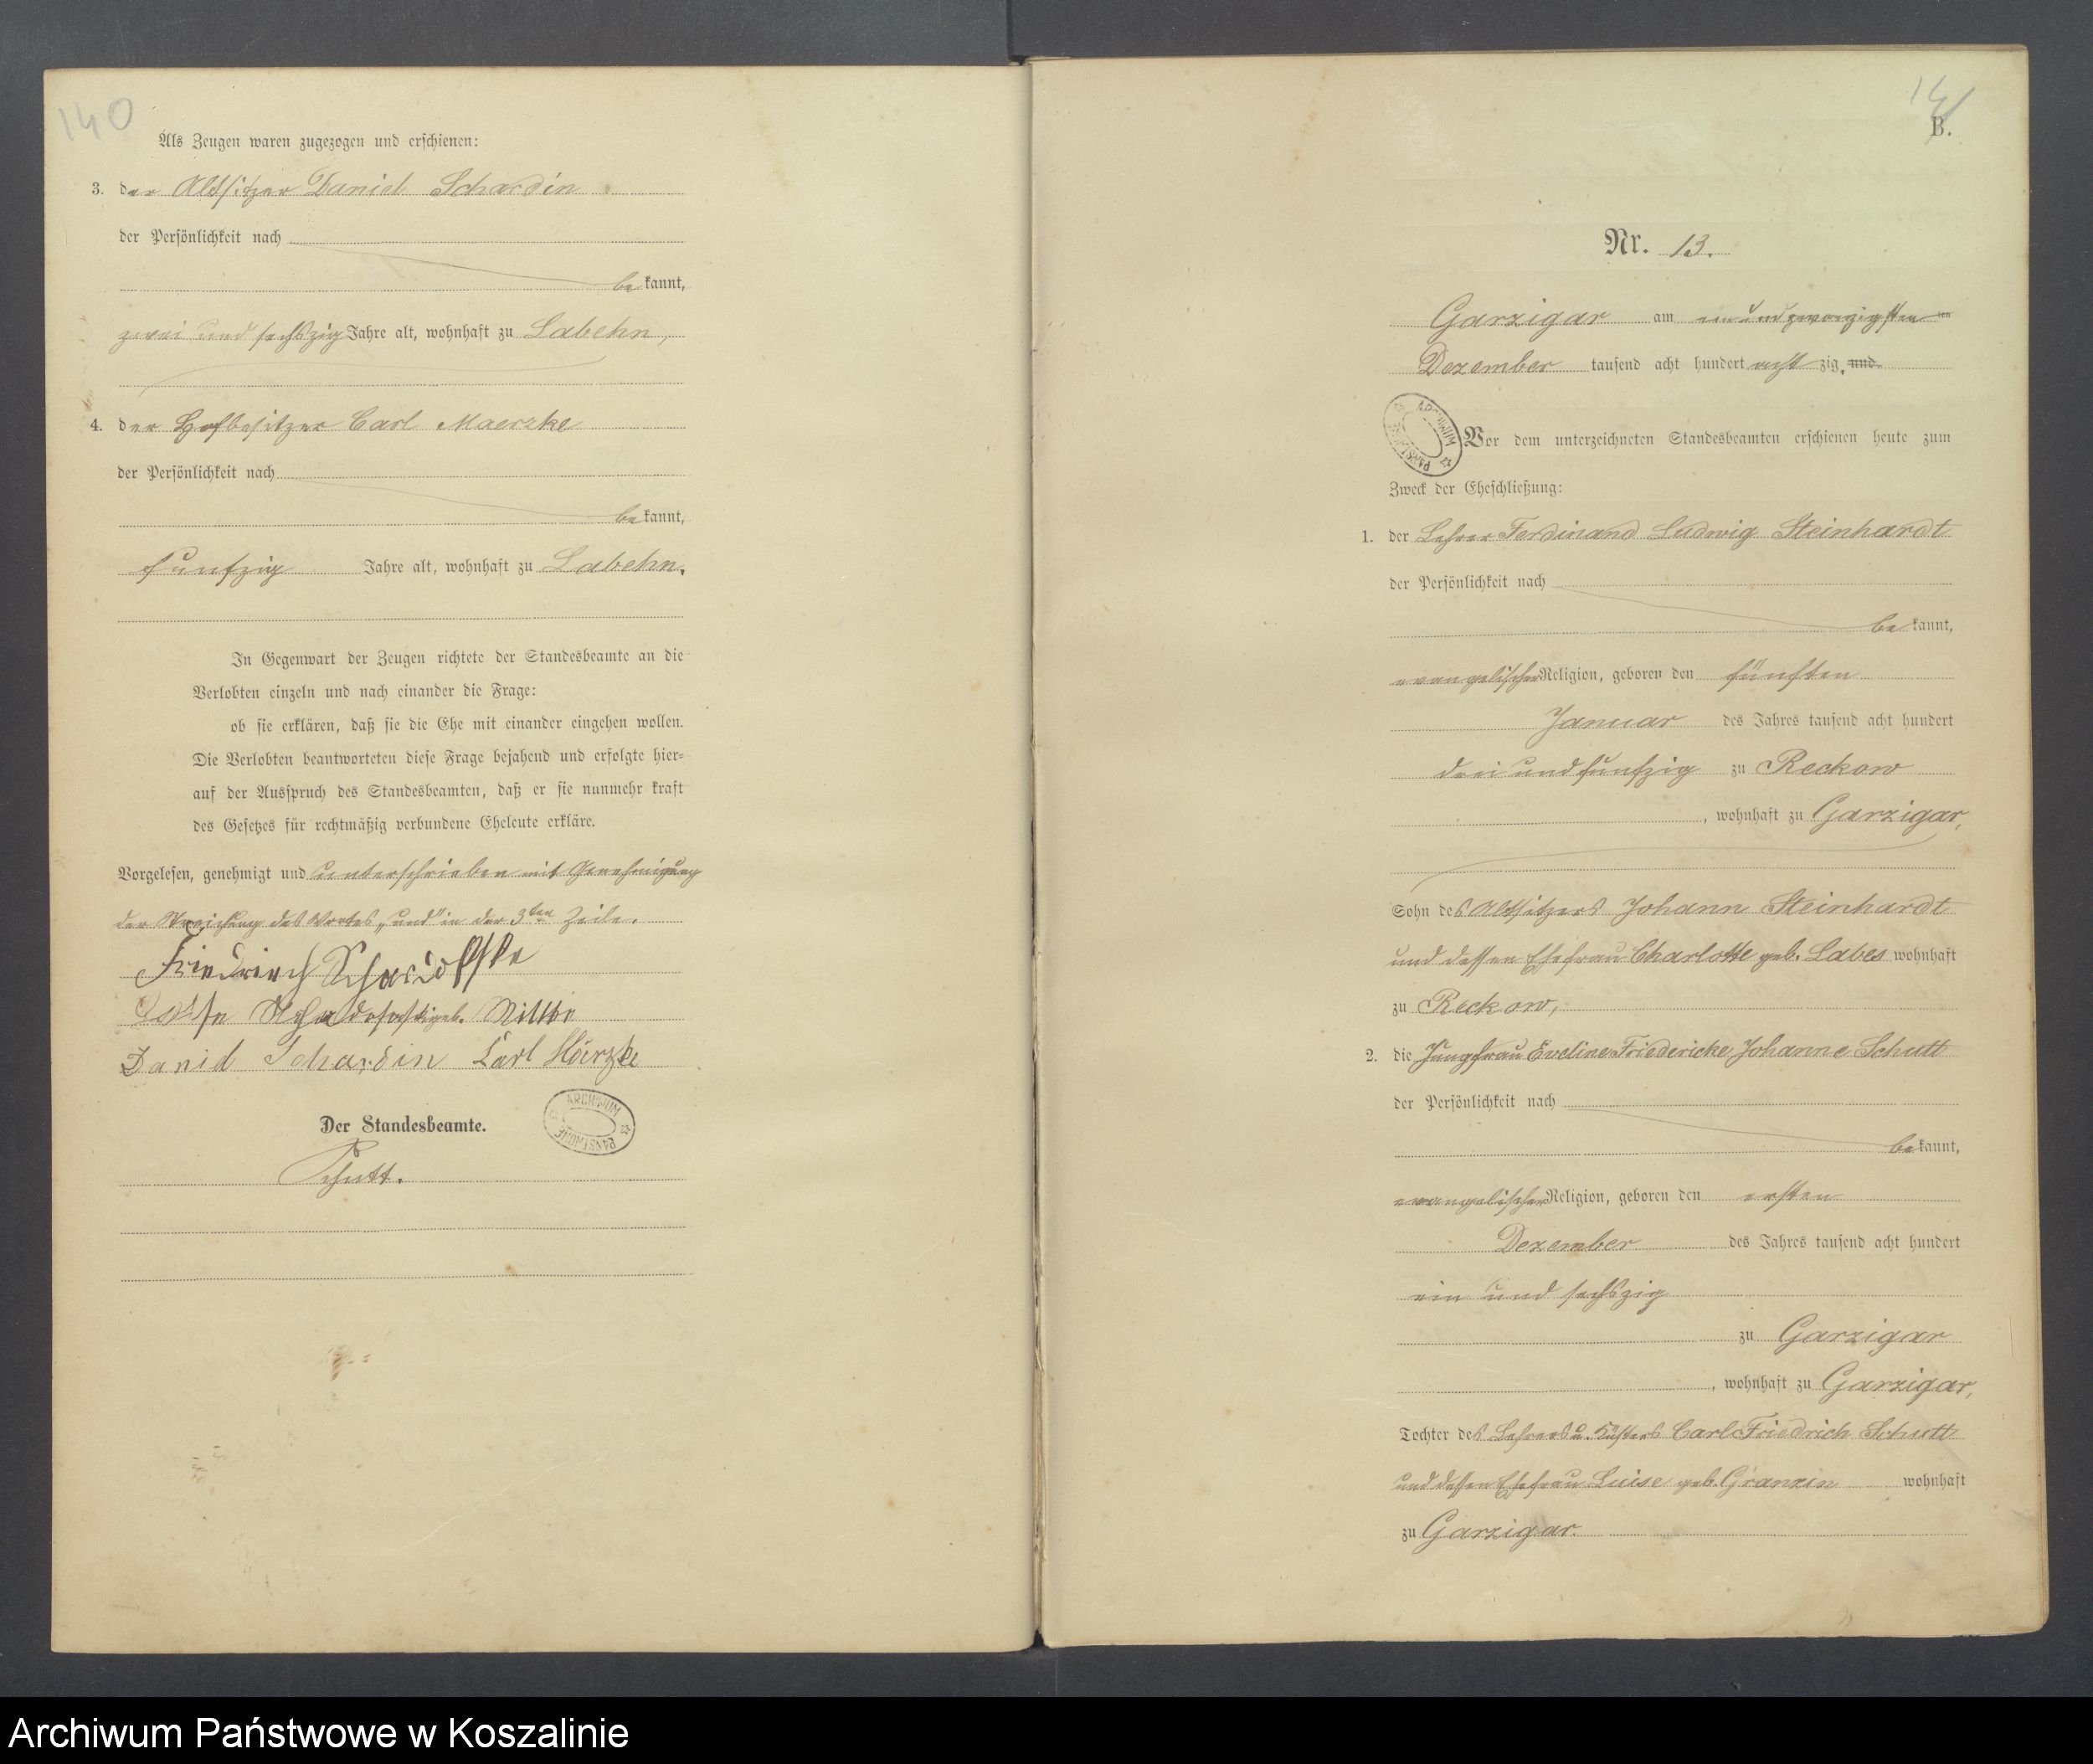 140
Als Zeugen waren zugezogen und erschienen:
3. der Altsitzer Daniel Schardin
der Persönlichkeit nach
bekannt,
zwei und sechszig Jahre alt, wohnhaft zu Labehn,
4. der Hofbesitzer Carl Maerzke
der Persönlichkeit nach
bekannt,
funfzig Jahre alt, wohnhaft zu Labehn.
In Gegenwart der Zeugen richtete der Standesbeamte an die
Verlobten einzeln und nach einander die Frage:
ob sie erklären, daß sie die Ehe mit einander eingehen wollen.
Die Verlobten beantworteten diese Frage bejahend und erfolgte hier=
auf der Ausspruch des Standesbeamten, daß er sie nunmehr kraft
des Gesetzes für rechtmäßig verbundene Eheleute erkläre.
Vorgelesen, genehmigt und unterschrieben mit Genehmigung
der Streichung des Wortes „und" in der 3ten Zeile.
Friedrich
geb.
Daniel Schardin Carl Märzke
ARCHIWUM PAŃSTWOWE
Der Standesbeamte.
Schutt.
B.
Nr. 13.
Garzigar am einundzwanzigsten
Dezember tausend acht hundert acht zig, und
ARCHIWUM PAŃSTWOWE
Vor dem unterzeichneten Standesbeamten erschienen heute zum
Zweck der Eheschließung:
1. der Lehrer Ferdinand Ludwig Steinhardt
der Persönlichkeit nach
bekannt,
evangelischer Religion, geboren den fünften
Januar des Jahres tausend acht hundert
drei und funfzig zu Reckow
, wohnhaft zu Garzigar,
Sohn des Altsitzers Johann Steinhardt
und dessen Ehefrau Charlotte geb. Labes wohnhaft
zu Reckow,
2. die Jungfrau Eveline Friedericke Johanne Schutt
der Persönlichkeit nach
bekannt,
evangelischer Religion, geboren den ersten
Dezember des Jahres tausend acht hundert
ein und sechszig
zu Garzigar
, wohnhaft zu Garzigar,
Tochter des Lehrers u. Küsters Carl Friedrich Schutt
und dessen Ehefrau Luise geb. Granzin wohnhaft
zu Garzigar.
Archiwum Państwowe w Koszalinie